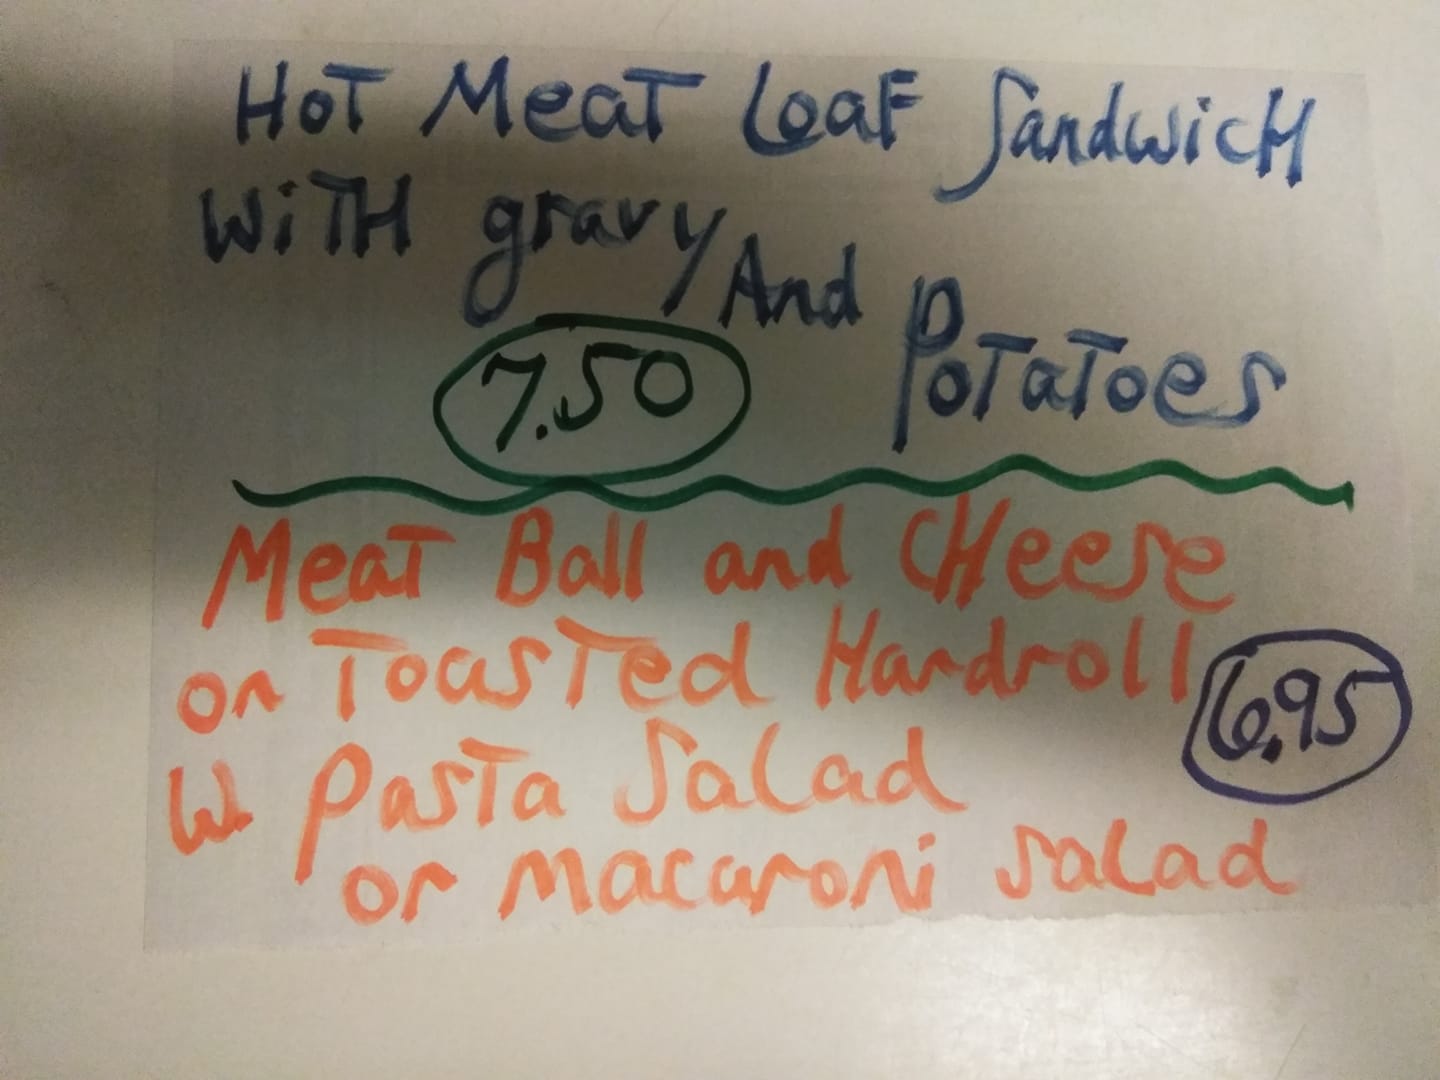 HoT MeaT Loaf SandwicH
WiTH gravy And PoTaToes
7.50
MeaT Ball and CHeese
on ToasTed Hardroll
6.95
W. PasTa Salad
or macaroni salad